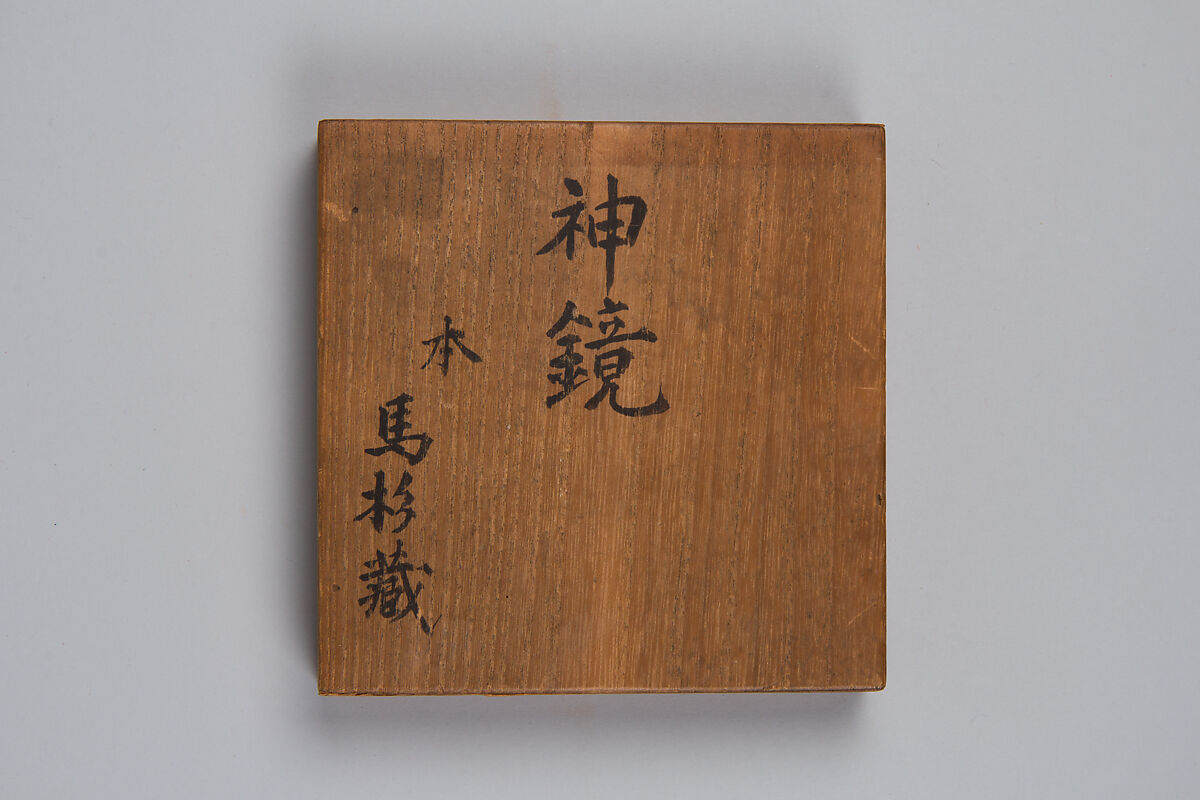 神鏡
本
馬杉藏